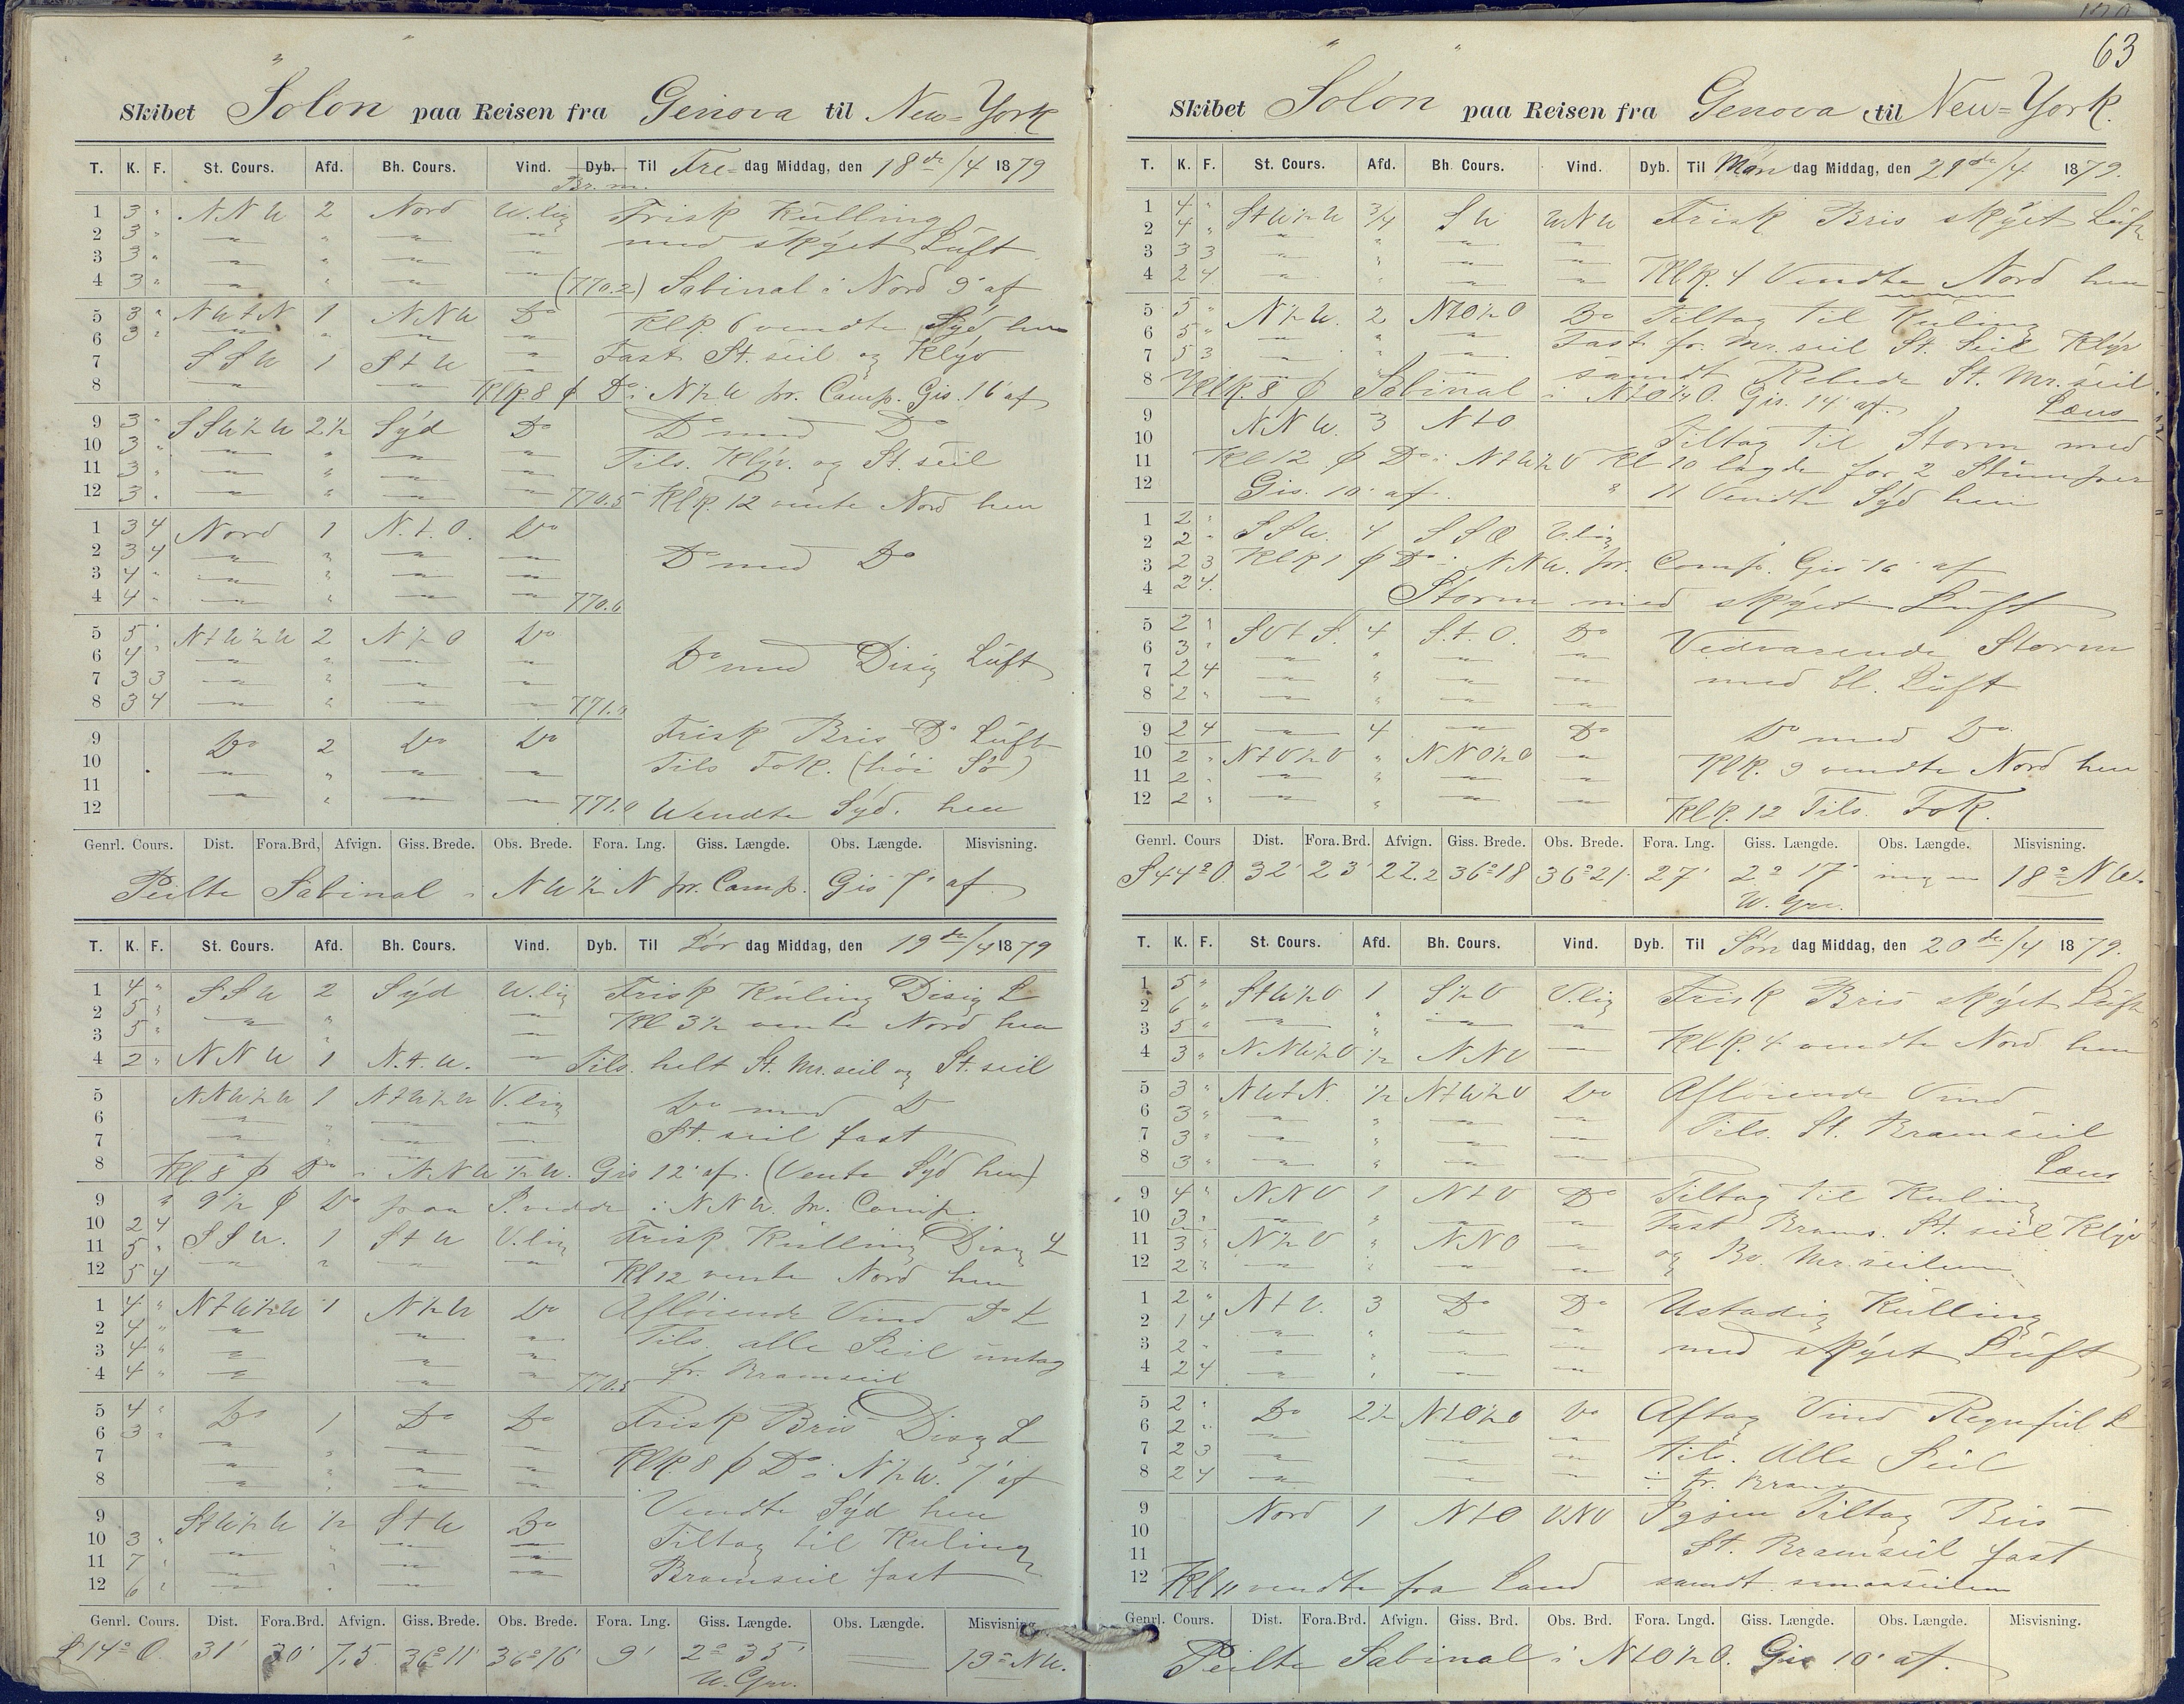 Skibet Solon paa Reisen fra Genova til New=York
T. K. F. St. Cours. Afd. Bh. Cours. Vind. Dyb. Til Fre= dag Middag, den 18de/4 1879
Br. m.
1 3 " NNW 2 Nord W.lig Frisk Kulling
2 3 " med skyet Luft
3 3 "
4 3 " (770.2) Sabinal i Nord 9' af
5 3 " NWtN 1 NNW Do Klk 6 vendte Syd hen
6 3 "
7 SSW 1 StW Fast St. seil og Klyv
8 Klk 8 ϕ Do i N½W pr. Camp. Gis. 16' af
9 3 " SSW½W 2½ Syd Do Do med Do
10 3 " Tils. Klyv. og St. seil
11 3 "
12 3 " 770.5 Klk. 12 vente Nord hen
1 3 4 Nord 1 N.t.O. Do
2 3 4 Do med Do
3 4 "
4 4 " 770.6
5 5 " NtW½W 2 N½O Do
6 4 " Do med Disig Luft
7 3 3
8 3 4 771.0
9 Do 2 Do Do Frisk Bris Do Luft
10 Tils Fok. (høi Sø)
11
12 771.0 Wendte Syd. hen
Genrl. Cours. Dist. Fora.Brd, Afvign. Giss. Brede. Obs. Brede. Fora. Lng. Giss. Længde. Obs. Længde. Misvisning.
Peilte Sabinal i NW½N pr. Camp. Gis 7' af
T. K. F. St. Cours. Afd. Bh. Cours. Vind. Dyb. Til Lør dag Middag, den 19de/4 1879
1 4 " SSW 2 Syd W.lig Frisk Kuling Disig L
2 5 " Kl 3½ vente Nord hen
3 5 "
4 2 " NNW 1 N.t.W. Tils. helt St. Mr. seil og St. seil
5 NNW½W 1 NtW½W V.lig Do med D
6 St. seil fast
7
8 Kl. 8 ϕ Do i NNW½W. Gis 12' af. (Vente Syd hen)
9 " 9½ ϕ Do paa S. vidde i NNW. pr. Comp.
10 2 4 SSW. 1 StW V.lig Frisk Kulling Disig L
11 5 "
12 5 4 Kl 12 vente Nord hen
1 4 " NtW½W 1 N½W Do Afløiende Vind Do L
2 4 " Tils. alle Seil untag
3 4 "
4 4 " 770.5 fr. Bramseil
5 4 " Do 1 Do Do Frisk Bris Disig L
6 3 "
7 Klk. 8 ϕ Do i N½W. 7' af
8
9 StW½W ½ StW Do Vendte Syd hen
10 3 " Tiltog til Kuling
11 7 " Bramseil fast
12 6 "
Genrl. Cours. Dist. Fora.Brd. Afvign. Giss. Brede. Obs. Brede. Fora. Lng. Giss. Længde. Obs. Længde. Misvisning
S 14° O. 31' 30' 7,5 36°11' 36°16' 9' 2°35' 19° NW.
W. Grv.
63
Skibet Solon paa Reisen fra Genova til New=York.
T. K. F. St. Cours. Afd. Bh. Cours. Vind. Dyb. Til Man dag Middag, den 21de/4 1879.
1 4 " StW½W ¾ SW WNW Frisk Bris skyet Luft
2 4 "
3 3 3
4 2 4 Klk. 4 Vendte Nord hen
5 5 " N½W. 2 NtO½O Do Tiltog til Kuling
6 5 " Fast fr. Mr. seil St. Seil Klyv
7 5 3 samdt Rebede St. Mr. seil
8 Klk. 8 ϕ Sabinal i NtO½O. Gis. 14' af. Læns
9 NNW. 3 NtO Tiltog til Storm med
10
11 Kl 12 ϕ Do i NtW½V Kl 10 lagde for 2 Stumper
12 Gis. 10' af. " 11 Vendte Syd hen
1 2 " SSW. 4 SSO V.lig
2 2 "
3 2 3 Klk 1 ϕ Do i NNW. pr. Comp. Gis 16' af
4 2 4. Storm med skyet Luft
5 2 " SVtS. 4 S.t.O. Do Vedvarende Storm
6 3 "
7 2 4 med bl. Luft
8 2 "
9 2 4 4 Do Do med Do
10 2 " NtO½O " NNO½O Klk. 9 vendte Nord hen
11 2 "
12 2 " Klk. 12 Tils. Fok.
Genrl. Cours Dist. Fora.Brd. Afvign. Giss. Brede. Obs. Brede. Fora. Lng. Giss. Længde. Obs. Længde. Misvisning.
S 44° O. 32' 23' 22.2 36°18 36°21' 27' 2° 17' ingen 18° NW.
W. Grv.
T. K. F. St. Cours. Afd. Bh. Cours. Vind. Dyb. Til Søn dag Middag, den 20de/4 1879.
1 5 " StW½V 1 S½V V.lig Frisk Bris skyet Luft
2 6 "
3 5 "
4 3 " NNW½V ½ NNV Klk. 4 vendte Nord hen
5 3 " NWtN. ½ NtW½V Do Afløiende Vind
6 3 " Tils. St. Bramseil
7 3 "
8 3 " Læns
9 4 " NNV 1 NtV Do Tiltog til Kuling
10 3 " Fast Brams. St. seil Klyv
11 3 " N½V " NNO og Be. Mr. seilene
12 2 "
1 2 " NtV. 3 Do Do Ustadig Kulling
2 1 4
3 2 " med skyet Luft
4 2 4
5 2 " Do 2½ NtO½O Do Aftog Vind Regnful L
6 2 "
7 2 3 Tils. Alle Seil
8 2 4 ÷ fr. Bram
9 Nord 1 NtO VNV Igjen Tiltog Bris
10
11 St. Bramseil fast
12 Kl 11 vendte fra Land samdt smaaseilene
Genrl. Cours. Dist. Fora.Brd. Afvign. Giss. Brd. Obs. Brd. Fora. Lngd. Giss. Længde. Obs. Længde. Misvisning.
Peilte Sabinal i NtO½O. Gis 10' af.